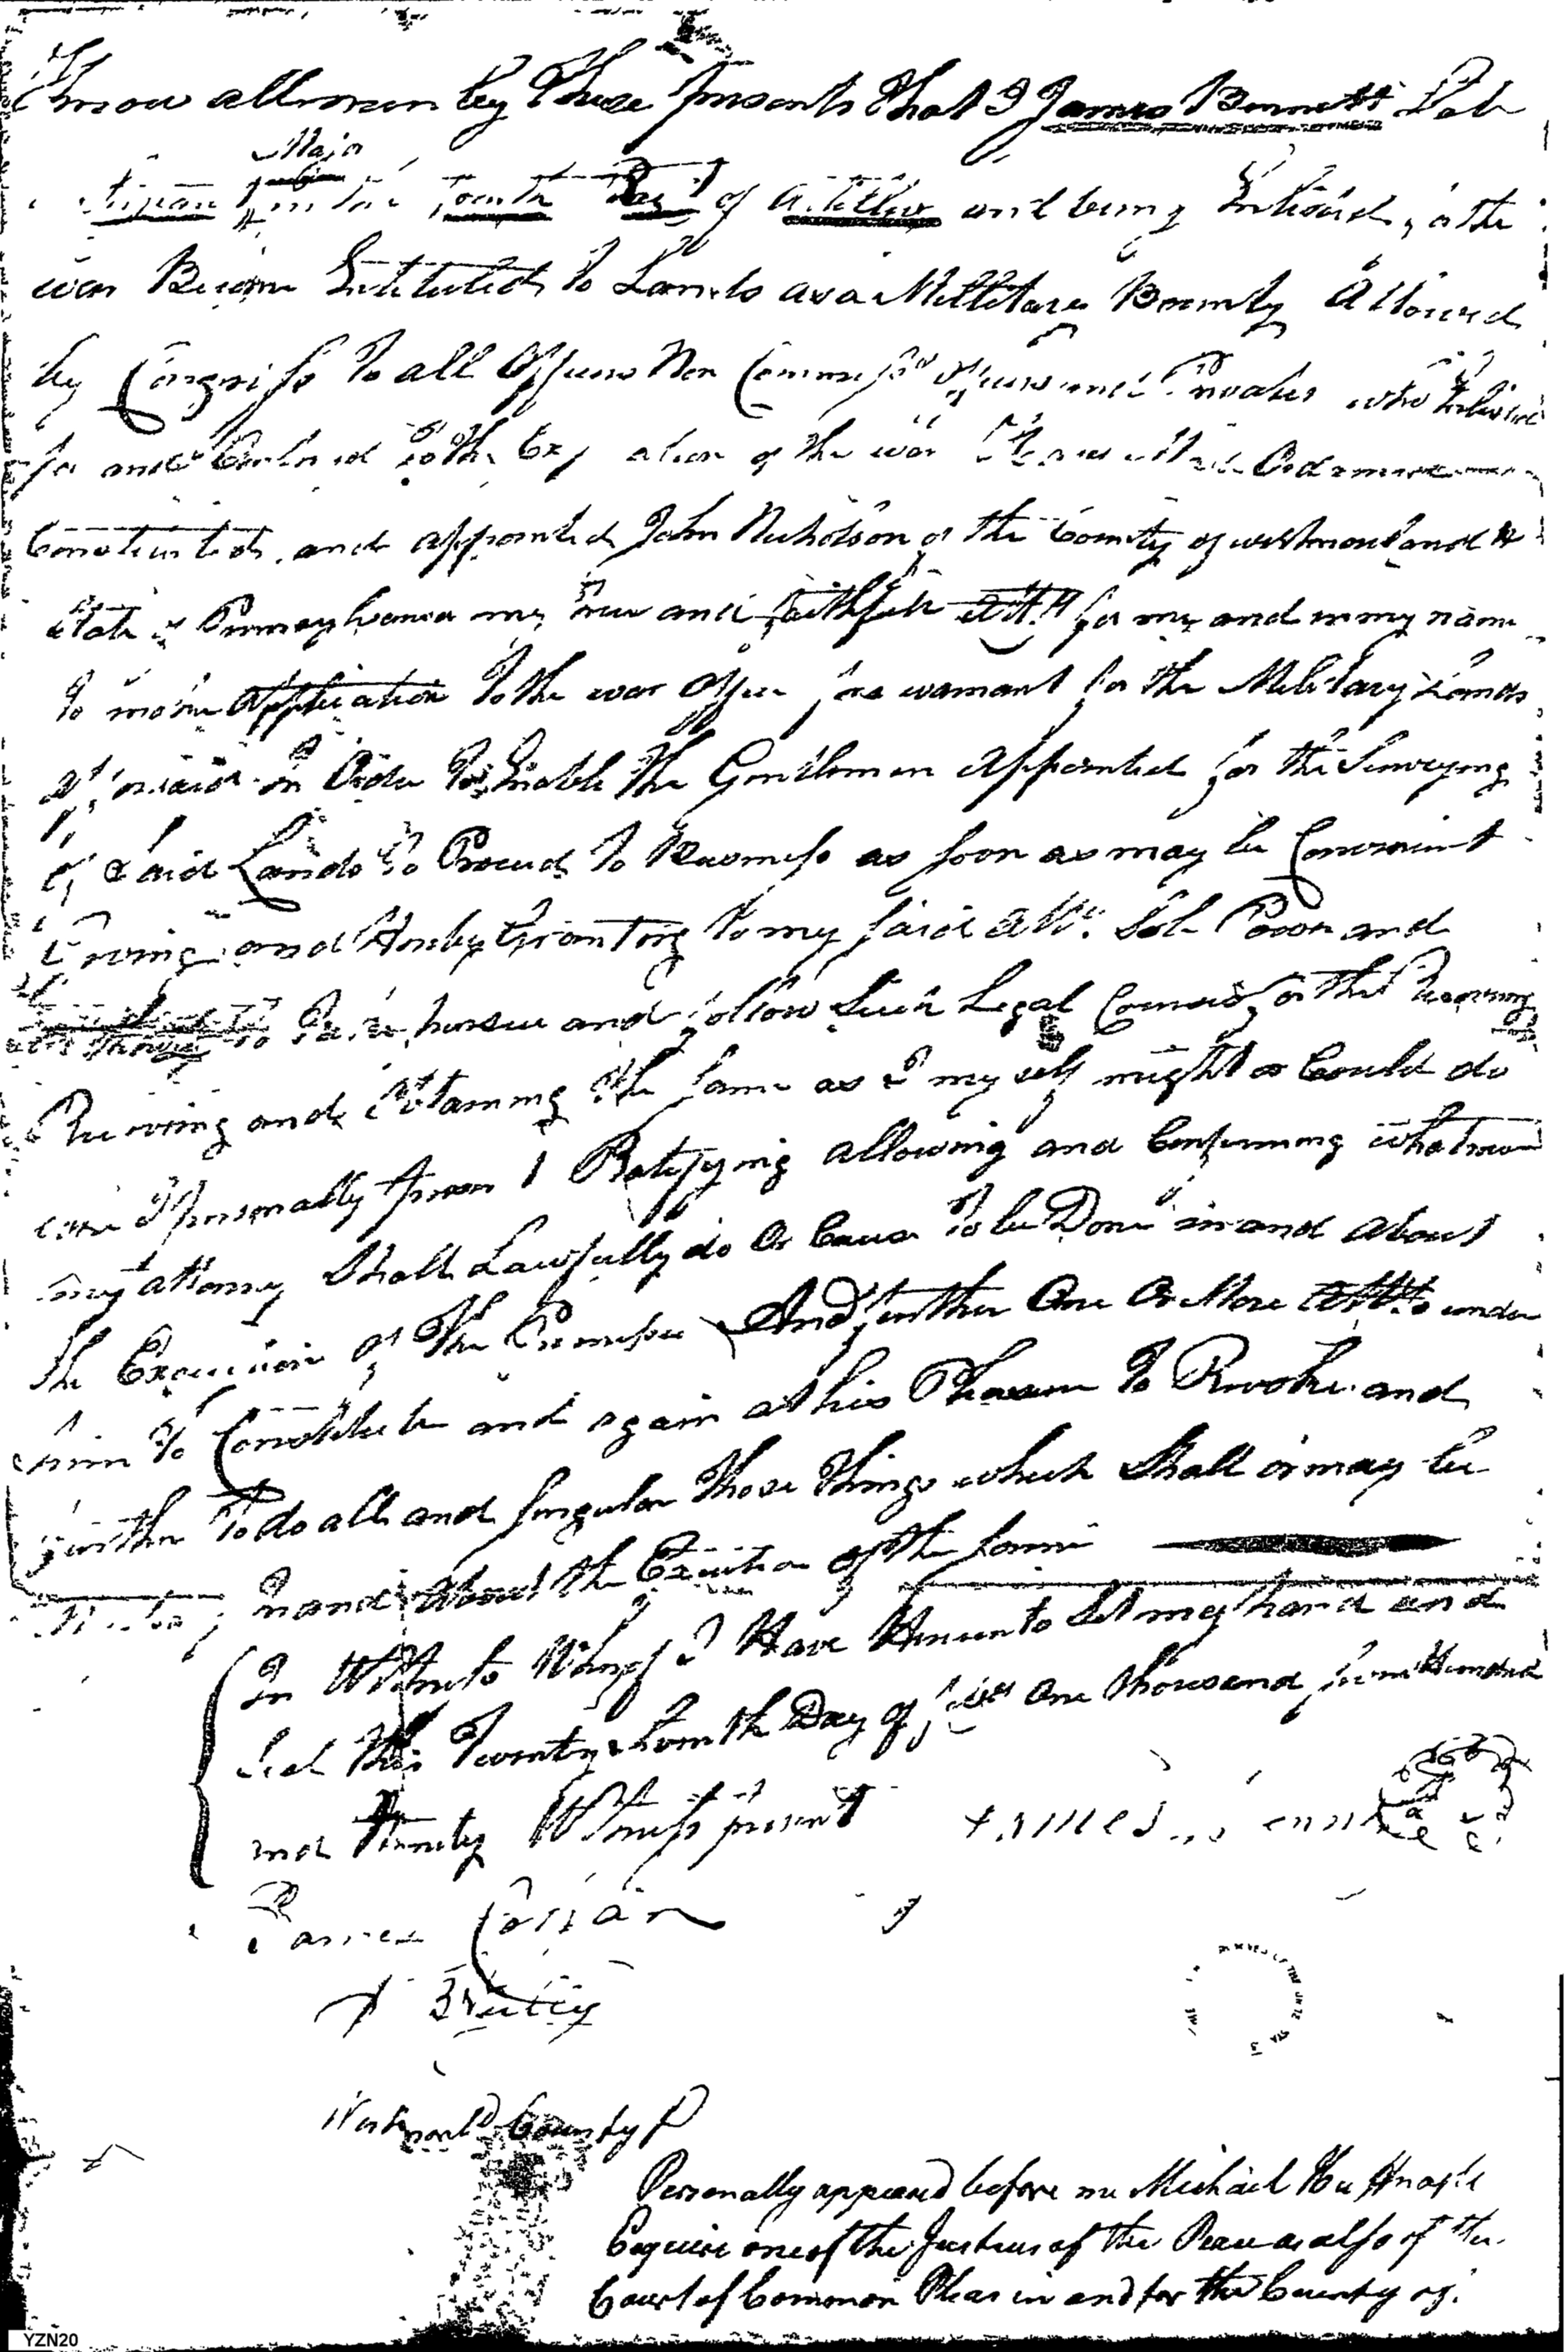 Know all men by These presents that I James Bennett Late
Major
in the fourth Reg't of Artillery and being Inlisted, in the
war Became Intituled to Lands as a Millitary Bounty Allowed
by Congress to all Officers Non Commiss'd officers and Privates who Inlisted
for and Continued to the Expiration of the war Ordained
Constituted, and appointed John Nicholson of the County of westmoreland &
State of Pennsylvania my true and faithfull att'y for me and in my name
To make Application To the war Office for a warrant for the Military Lands
aforesaid in Order To Enable The Gentleman Appointed for the Surveying
of said Lands To Proceed To Business as soon as may be Convenient
Giving and Hereby Granting To my said att'y. Sole Power and
to persue and follow such Legal Courses for the Recovering
Receiving and Obtaining The same as I my self might or Could do
were I personally present Ratifying allowing and Confirming whatsoever
my attorney shall Lawfully do Or Cause To be Done in and about
the Execution of The Premises And further One Or More Att'ys under
him To Constitute and again at his Pleasure To Revoke and
further To do all and singular Those Things which Shall or may be
In and About the Execution of the same
In Witness Whereof I Have Hereunto Set my hand and
Seal This Twenty fourth Day of one thousand seven Hundred
and Ninety Witness present James Bennett
James
Westmorl'd County
Personally appeared before me Michael
Esquire one of the Justices of the Peace as also of the
Court of Common Pleas in and for the County of
YZN20